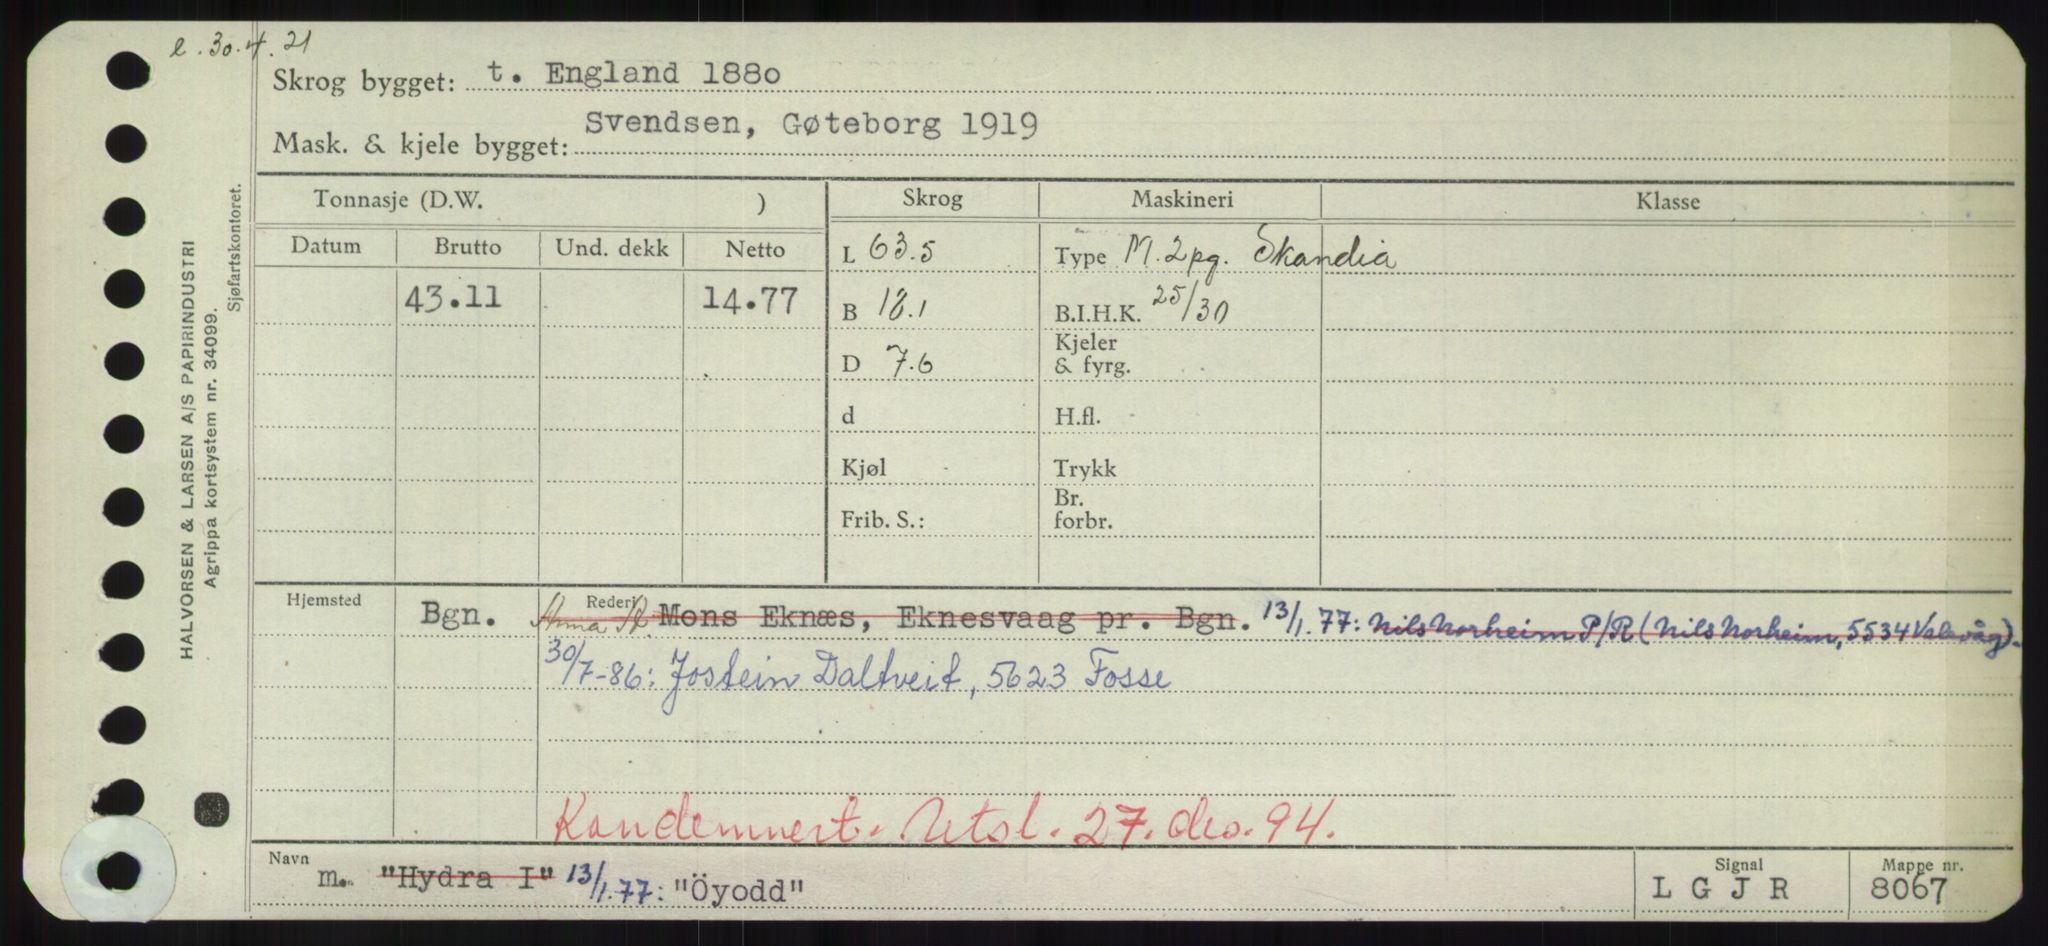 e. 30.4.21
Skrog bygget: t. England 1880
Mask. & kjele bygget: Svendsen, Gøteborg 1919
Tonnasje (D.W. ) Skrog Maskineri Klasse
Datum Brutto Und. dekk Netto L 63.5 Type M. 2pg. Skandia
43.11 14.77 B 18.1 B.I.H.K. 25/30
D 7.6 Kjeler & fyrg.
d H.fl.
Kjøl Trykk
Frib. S.: Br. forbr.
Hjemsted Bgn. Rederi Anna K. Mons Eknæs, Eknesvaag pr. Bgn. 13/1.77: Nils Norheim P/R (Nils Norheim, 5534 Valevåg).
30/7-86: Jostein Daltveit, 5623 Fosse
Kondemnert. Utsl. 27. des. 94.
Navn m. "Hydra I" 13/1.77: "Öyodd" Signal L G J R Mappe nr. 8067
HALVORSEN & LARSEN A/S PAPIRINDUSTRI
Agrippa kortsystem nr. 34099.
Sjøfartskontoret.